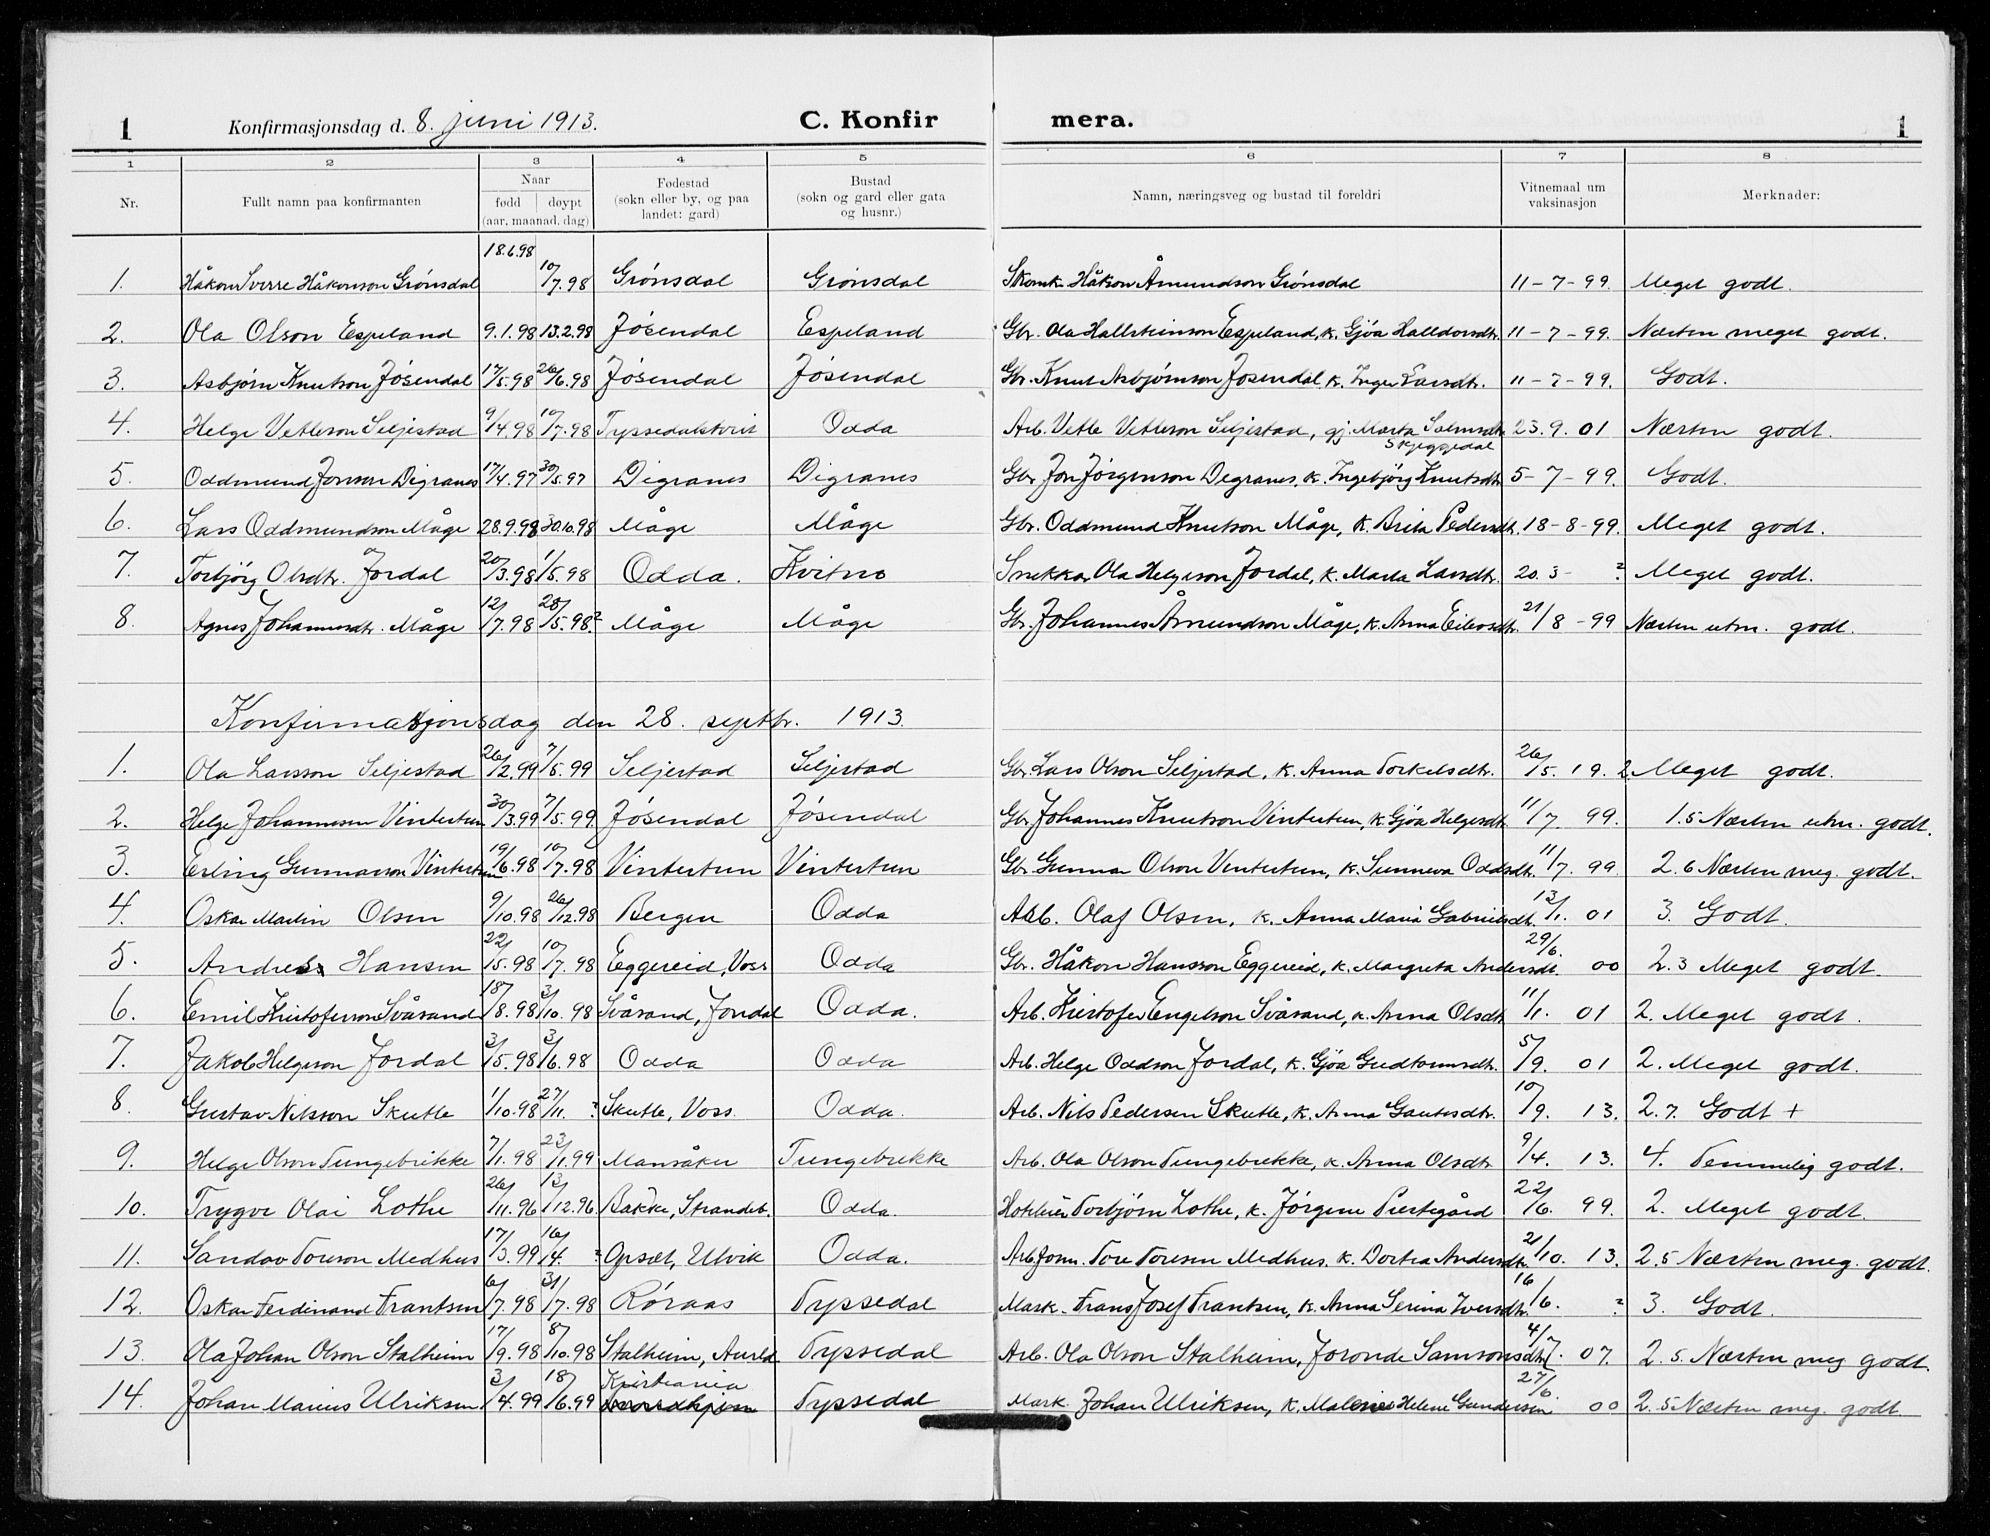 1 Konfirmasjonsdag d. 8. juni 1913. C. Konfir mera. 1
1 2 3 4 5 6 7 8
Nr. Fullt namn paa konfirmanten Naar fødd døypt (aar, maanad, dag) Fødestad (sokn eller by, og paa landet: gard) Bustad (sokn og gard eller gata og husnr.) Namn, næringsveg og bustad til foreldri Vitnemaal um vaksinasjon Merknader:
1. Håkon Sverre Håkonson Grønsdal 18.6.98 10/7.98 Grønsdal Grønsdal Håkon Åmundson Grønsdal 11-7-99. Meget godt.
2. Ola Olson Espeland 9.1.98 13.2.98 Jøsendal Espeland Gbr. Ola Hallsteinson Espeland, k. Gjøa Halldorsdtr. 11-7-99. Næsten meget godt.
3. Asbjørn Knutson Jøsendal 17/5.98 26/6.98 Jøsendal Jøsendal Gbr. Knut Asbjørnson Jøsendal k. Inger Larsdtr. 11-7-99. Godt.
4. Helge Vetleson Seljestad 9/4.98 10/7.98 Odda Arb. Vetle Vetleson Seljestad, gj. Marta 23.9.01 Næsten godt.
Skjeggedal
5. Oddmund Jonson Digranes 17/4.97 30/5.97 Digranes Digranes Gbr. Jon Jørgenson Degranes, k. Ingebjørg Knutsdtr. 5-7-99. Godt.
6. Lars Oddmundson Måge 28.9.98 30.10.98 Måge Måge Gbr. Oddmund Knutson Måge, k. Brita Pedersdtr. 18-8-99. Meget godt.
7. Torbjørg Olsdtr. Jordal 20/3.98 1/5.98 Odda. Kvitno Snekkar Ola Helgeson Jordal, k. Marta Larsdtr. 20.3- ? Meget godt.
8. Agnes Johannesdtr. Måge 12/7.98 28/5.98? Måge Måge Gbr. Johannes Åmundson Måge, k. Anna Eilevsdtr. 21/8-99 Næsten utm. godt.
Konfirmasjonsdag den 28. septbr. 1913.
1. Ola Larsson Seljestad 26/2.99 7/5.99 Seljestad Seljestad Gbr. Lars Olson Seljestad, k. Anna Torkelsdtr. 26/5. 19. 2. Meget godt.
2. Helge Johanneson Vintertun 30/3.99 7/5.99. Jøsendal Jøsendal Gbr. Johannes Knutson Vintertun, k. Gjøa Helgesdtr. 11/7 99. 1.5 Næsten utm. godt.
3. Erling Gunnarson Vintertun 19/6.98 10/7.98 Vintertun Vintertun Gbr. Gunnar Olson Vintertun, k. Sunneva Oddsdtr. 11/7. 99. 2.6 Næsten meg. godt.
4. Oskar Martin Olsen 9/10.98 26/12.98 Bergen Odda Arb. Olaf Olsen, k. Anna Maria Gabrielsdtr. 13/1. 01 3. Godt.
5. Andreas Hansen 22/5.98 10/7.98 Eggereid, Voss Odda Gbr. Håkon Hansson Eggereid, k. Margreta Andersdt. 29/6. 00 2.3 Meget godt.
6. Emil Kristoferson Svåsand 18/8.98 3/10.98 Svåsand, Jondal Odda. Arb. Kristofer Engelson Svåsand, k. Anna Olsdtr. 11/1. 01 2. Meget godt.
7. Jakob Helgeson Jordal 3/5.98 3/6.98 Odda Odda Arb. Helge Oddson Jordal, k. Gjøa Gudtormsdtr. 5/9. 01 2. Meget godt.
8. Gustav Nilsson Skutle 1/10.98 27/11. ? Skutle, Voss. Odda. Arb. Nils Pedersen Skutle, k. Anna Gautesdtr. 10/9. 13. 2.7. Godt +
9. Helge Olson Tungebrekke 7/1.98 23/1.99 Mansåker Tungebrekke Arb. Ola Olson Tungebrekke, k. Anna Olsdtr. 9/4. 13. 4. Temmelig godt.
10. Trygve Olai Lothe 26/11.96 13/12.96 Bakke, Strandeb. Odda. Torbjørn Lothe, k. Jørgine Prestegård 22/6. 99. 2. Meget godt.
11. Sandov Toreson Medhus 17/3.99 16/4. ? Opsæt, Ulvik Odda. Arb.form. Tore Toresen Medhus. k. Dortea Andersdtr. 21/10. 13. 2.5 Næsten meg. godt.
12. Oskar Ferdinand Frantsen 6/7.98 31/7.98 Røraas Tyssedal Mask. Frans Josef Frantsen, k. Anna Serina Iversdtr. 16/6. ? 3. Godt.
13. Ola Johan Olson Stalheim 17/9.98 8/10.98 Stalheim, Aurld. Tyssedal Arb. Ola Olson Stalheim, Joronde Samsonsdtr. 4/7. 07. 2.5. Næsten meg godt.
14. Johan Marius Ulriksen 3/4.99 18/6.99 Kristiania Tyssedal Mask. Johan Ulriksen, k. Helene Gundersen 27/6. 00 2.5 Næsten meg. godt.